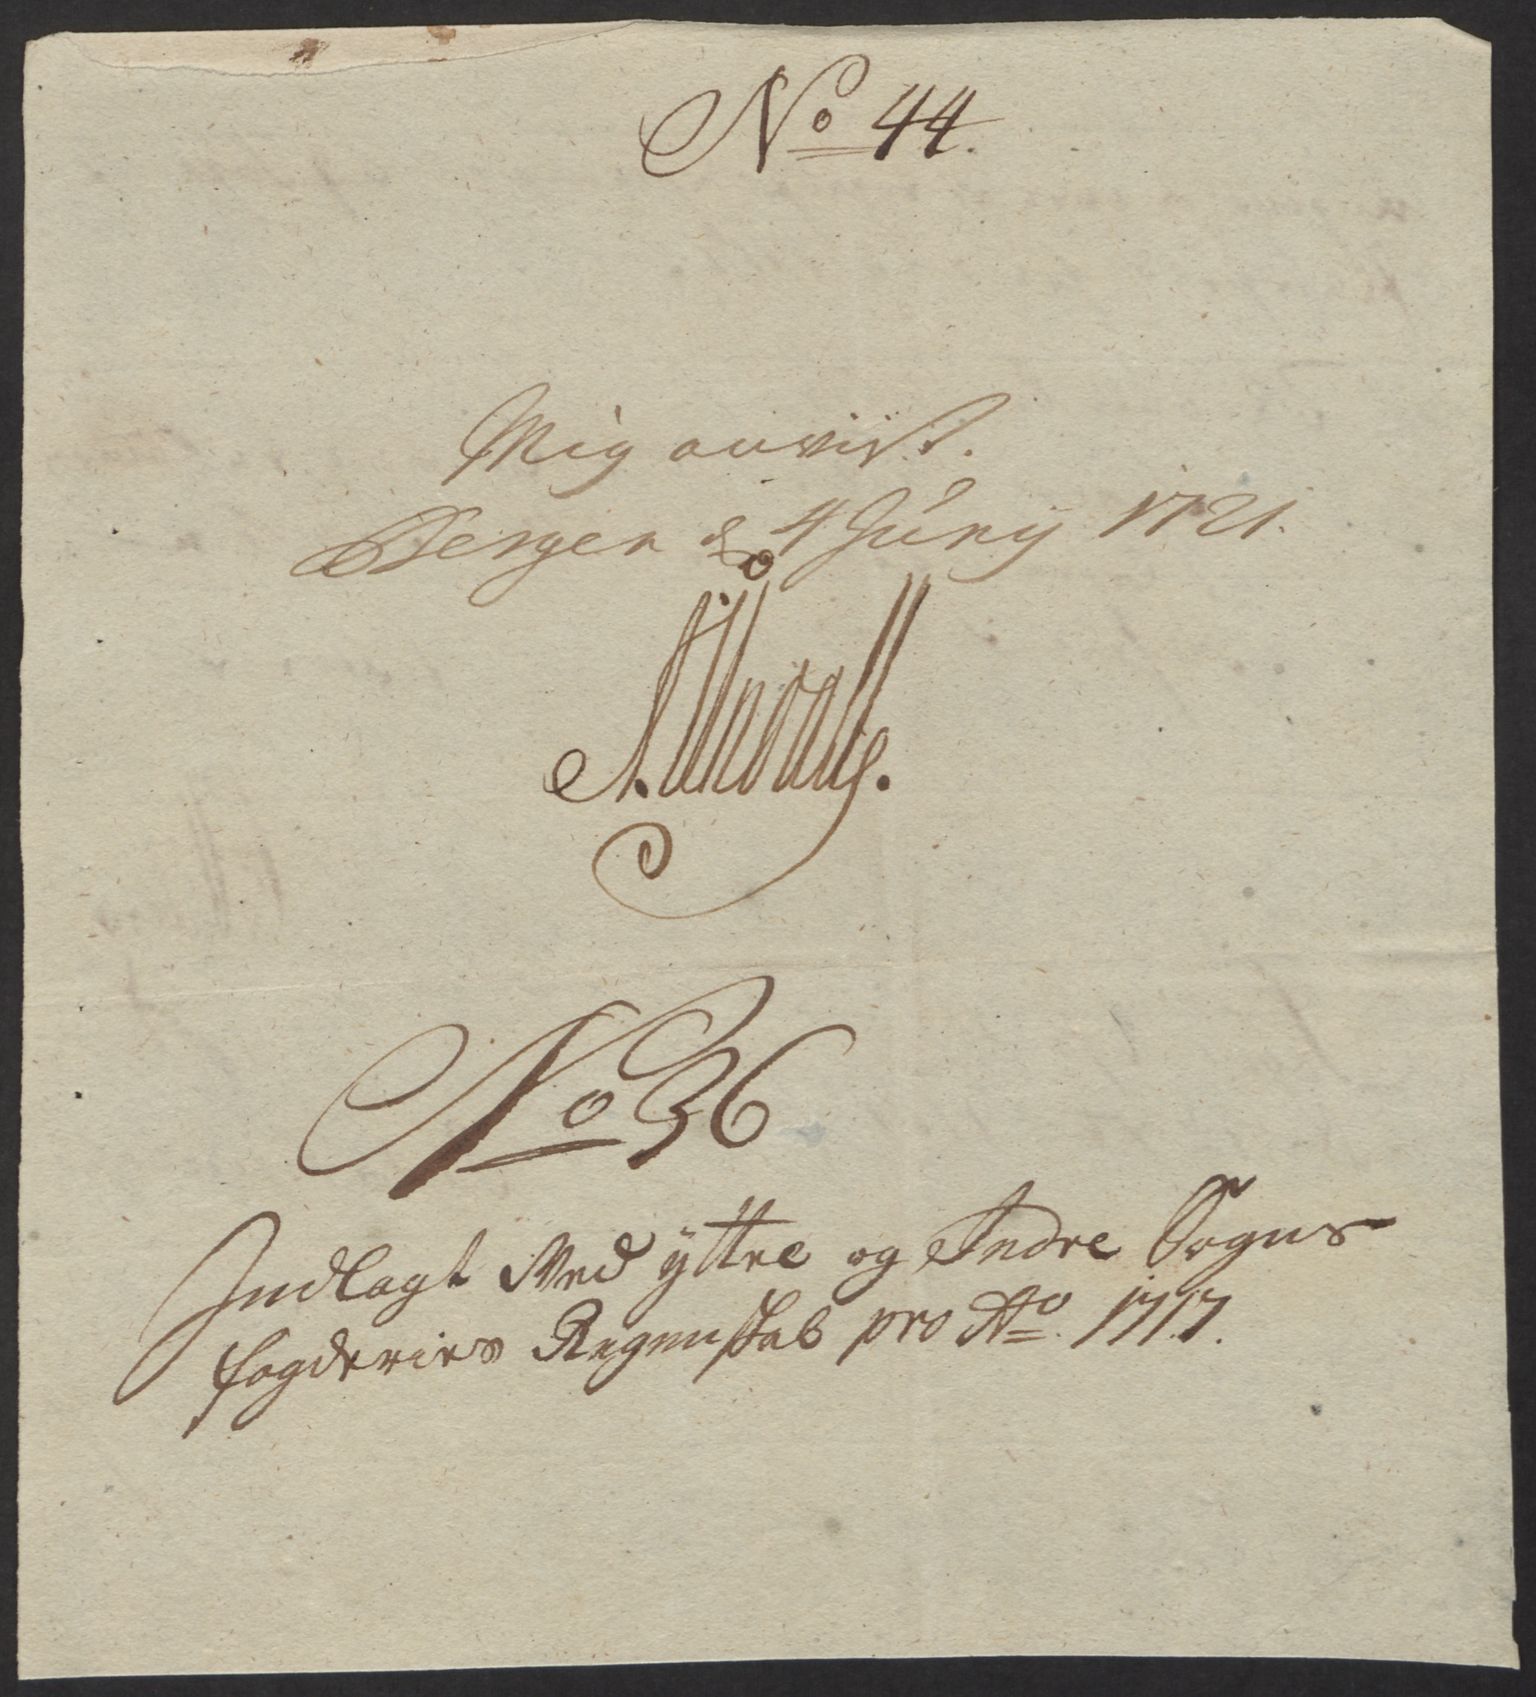 No 44.
Mig anvist.
Bergen d 4 Juny 1721.
No 36
Indlagt Med yttre og Indre Sogns
fogderies Regenskab pro Ao. 1717.